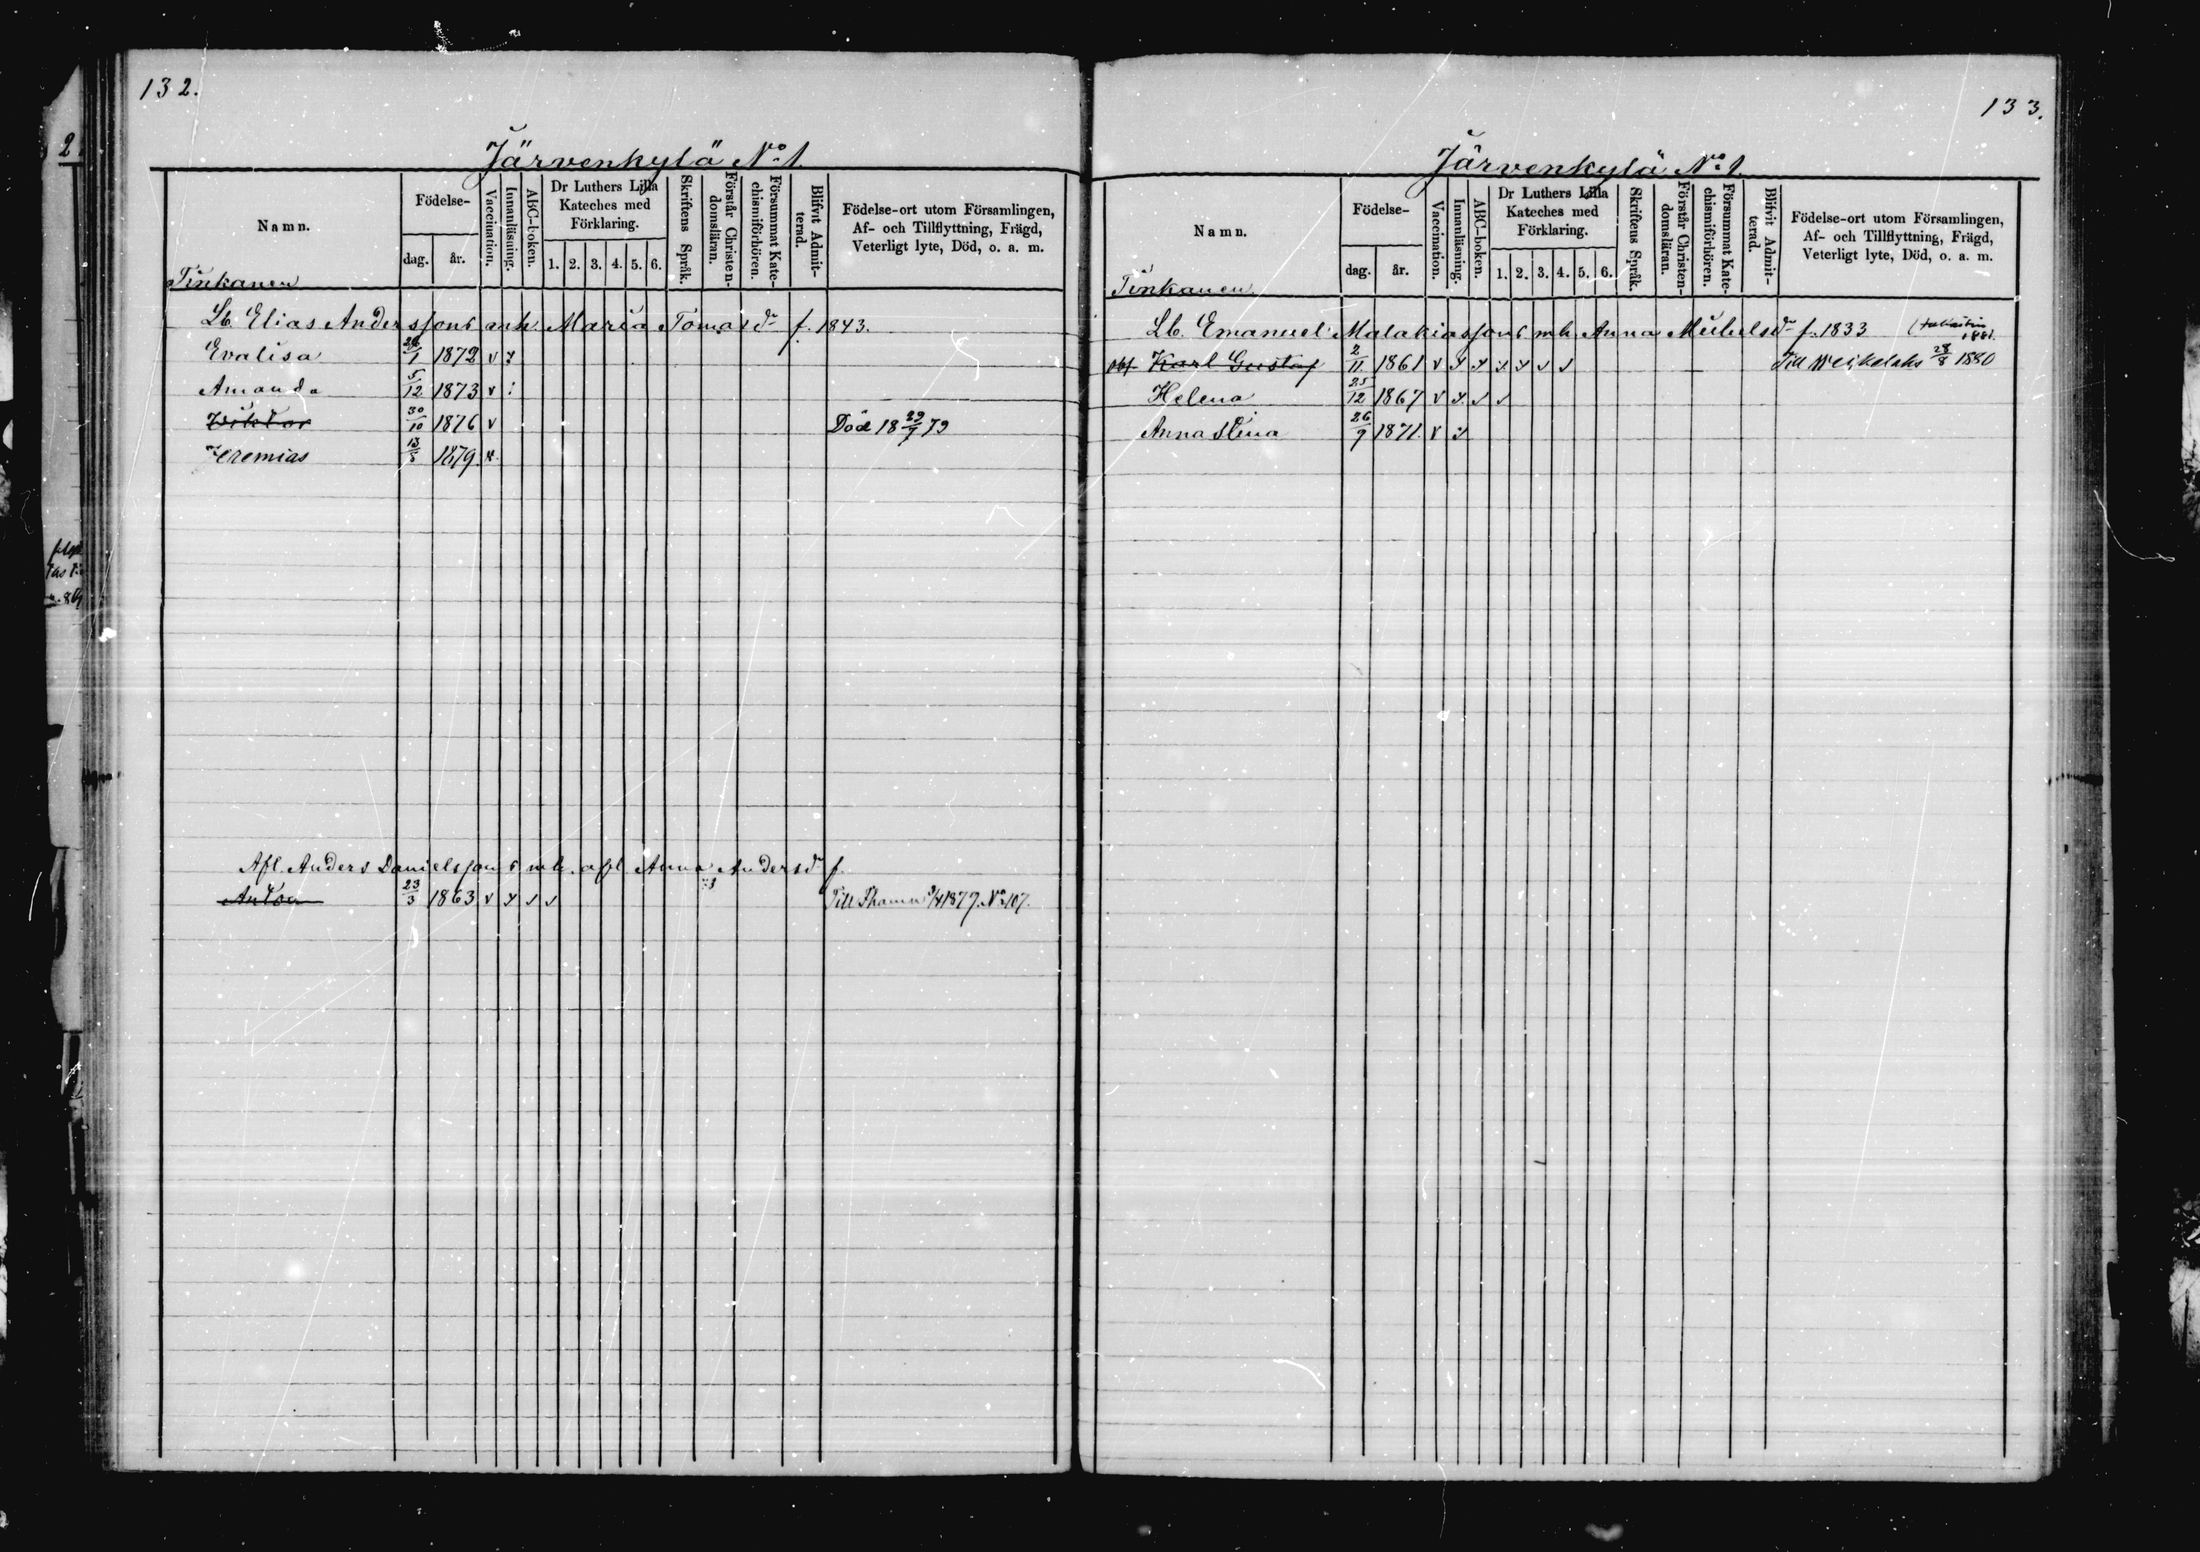 132.
Järvenkylä No 1.
Namn.
Födelse-
dag. år.
Vaccination.
Innanläsning.
ABC-boken.
Dr Luthers Lilla Kateches med Förklaring.
1. 2. 3. 4. 5. 6.
Skriftens Språk.
Förstår Christen-domsläran.
Försummat Kate-chismiförhören.
Blifvit Admit-terad.
Födelse-ort utom Församlingen,
Af- och Tillflyttning, Frägd,
Veterligt lyte, Död, o. a. m.
Tinkanen
Lb. Elias Anderssons mh. Maria Tomasdr f. 1843.
Evalisa 1872 v
Amanda 5/12 1873 v
Wiktor 30/10 1876 v Död 18 29/7 79
Jeremias 13/8 1879
Afl. Anders Danielssons mh. afl Anna Andersdr f.
Anton 23/3 1863 v 1877. No 107.
133.
Järvenkylä No 1.
Namn.
Födelse-
dag. år.
Vaccination.
Innanläsning.
ABC-boken.
Dr Luthers Lilla Kateches med Förklaring.
1. 2. 3. 4. 5. 6.
Skriftens Språk.
Förstår Christen-domsläran.
Försummat Kate-chismiförhören.
Blifvit Admit-terad.
Födelse-ort utom Församlingen,
Af- och Tillflyttning, Frägd,
Veterligt lyte, Död, o. a. m.
Tinkanen
Lb. Emanuel Malakiassons mh. Anna Michelsdr f. 1833
Karl Gustaf 2/11 1861 v Till Weikelaks 28/8 1880
Helena 25/12 1867 v
Anna Stina 26/9 1871. v